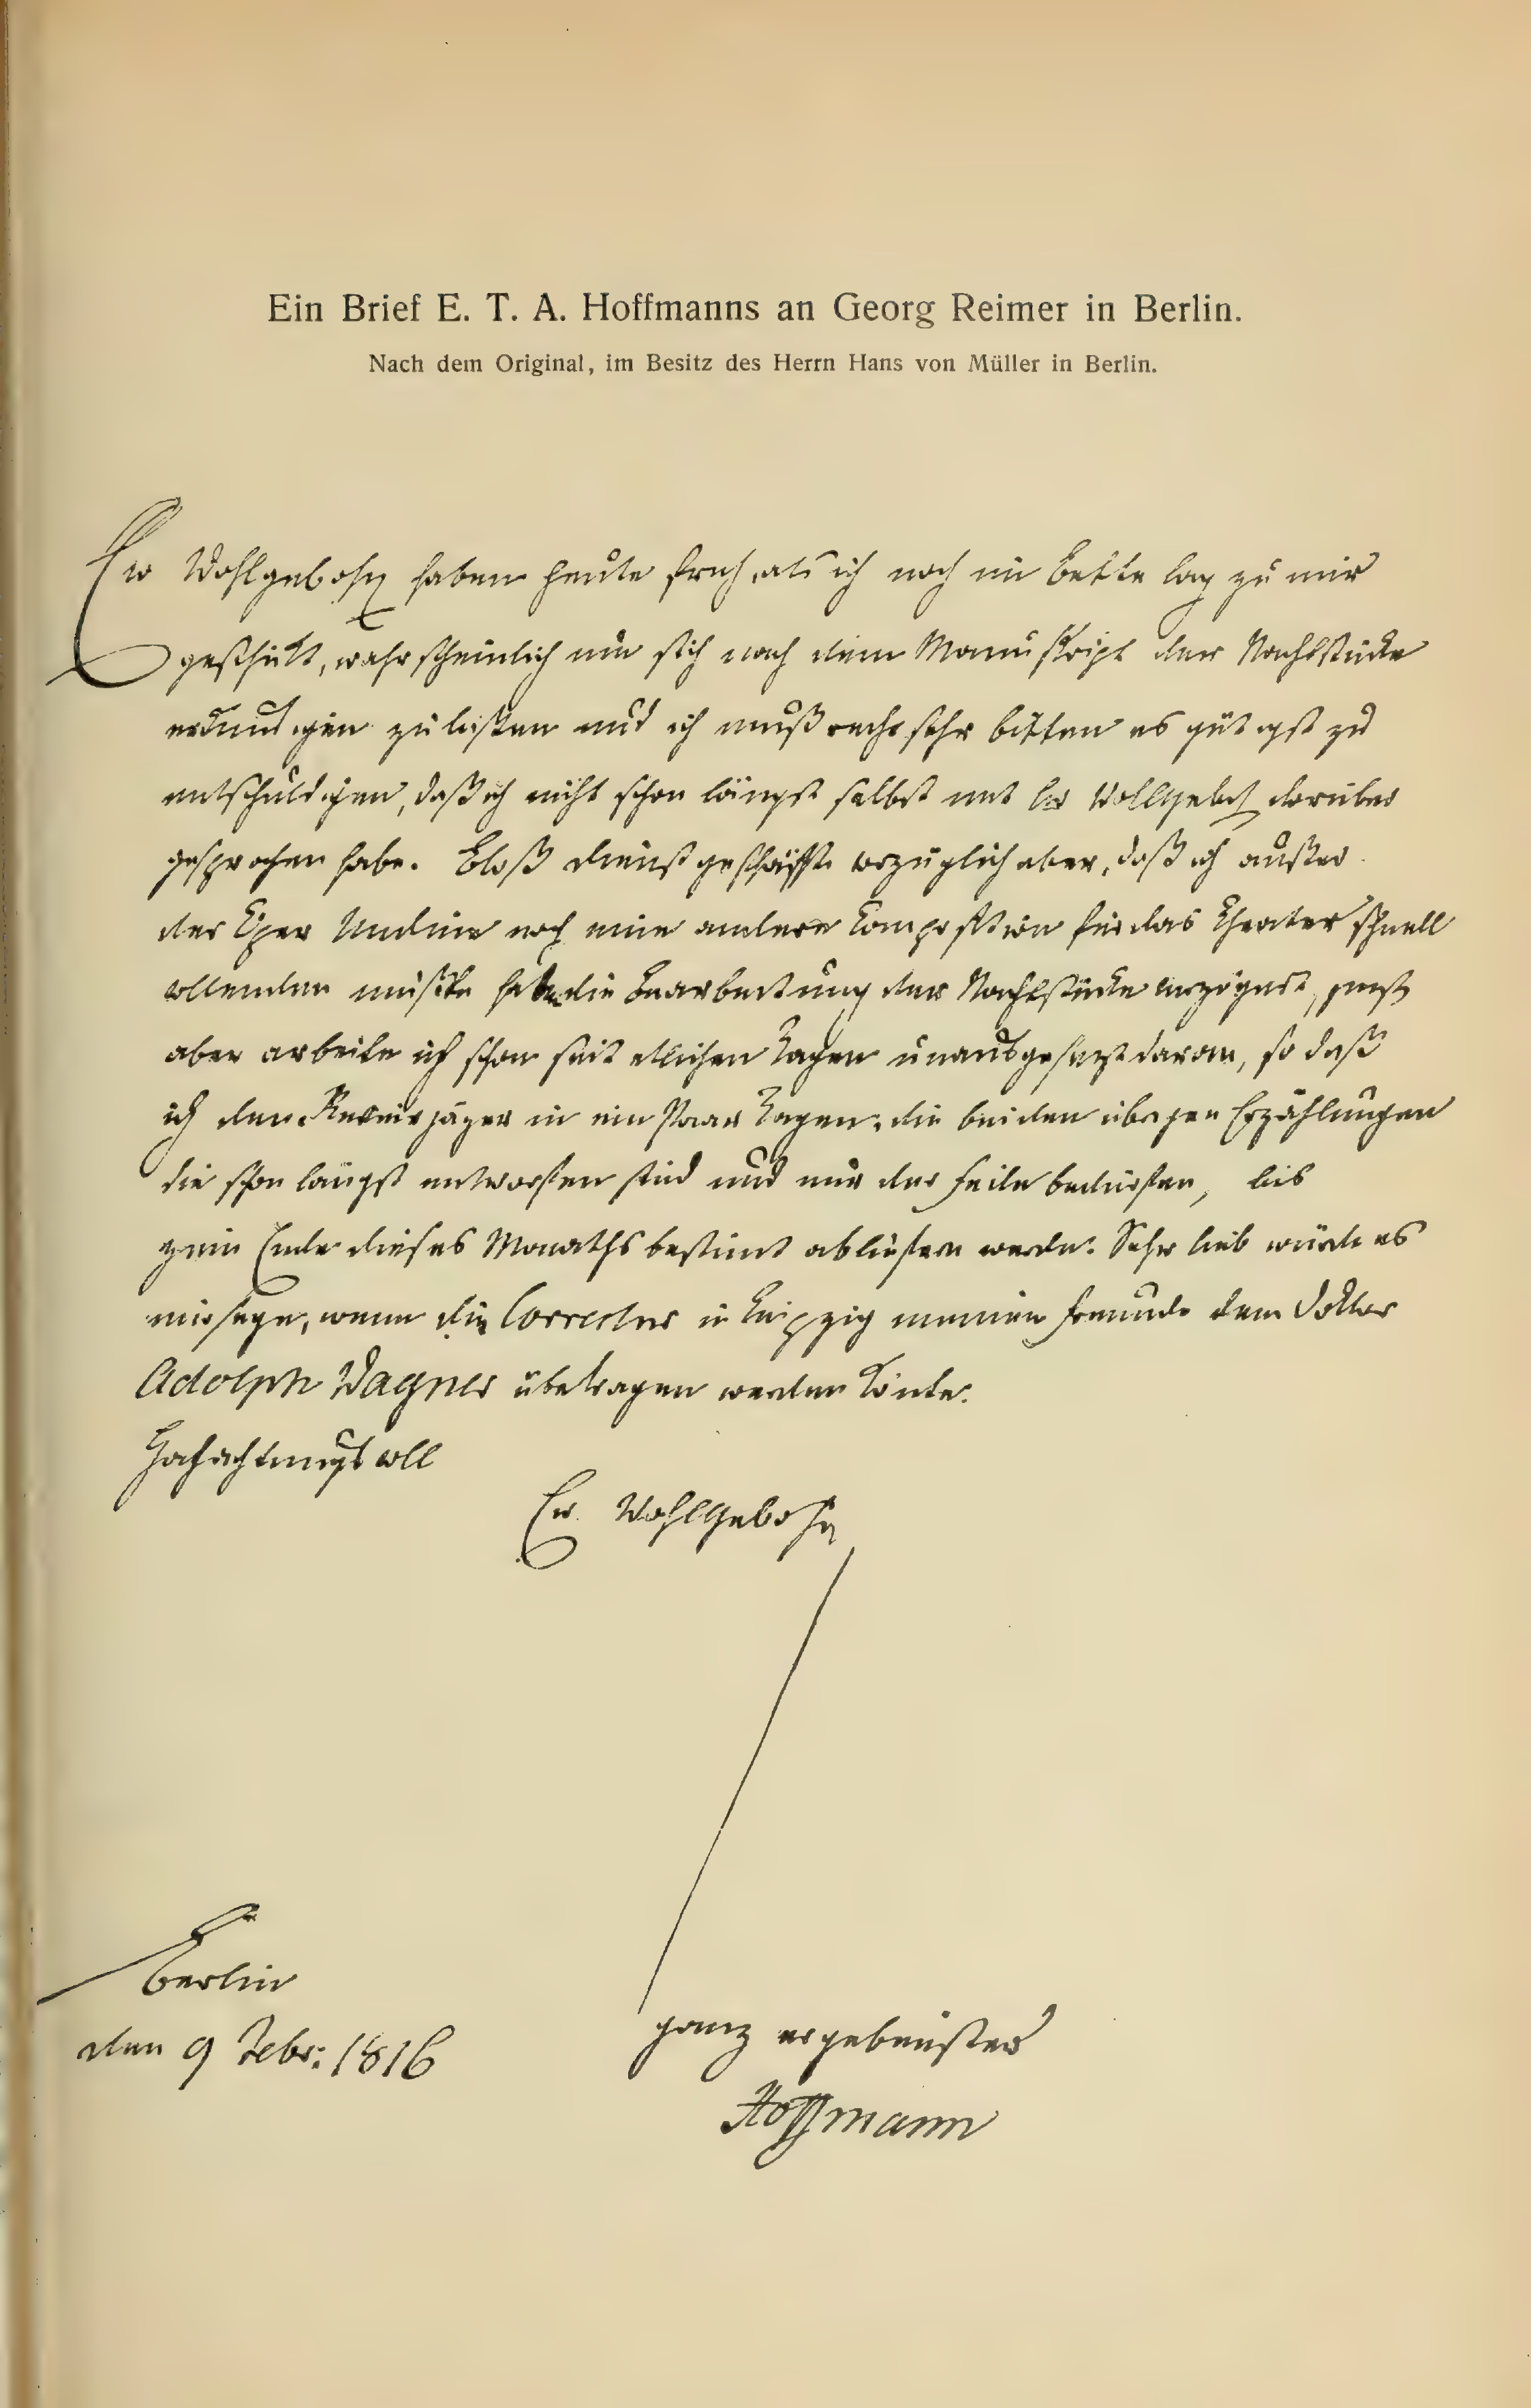 Ein Brief E. T. A. Hoffmanns an Georg Reimer in Berlin.
Nach dem Original, im Besitz des Herrn Hans von Müller in Berlin.
Ew Wohlgebohr haben heute früh, als ich noch im Bette lag zu mir
geschickt, wahrscheinlich um sich nach dem Manuskript der Nachtstücke
erkundigen zu lassen und ich muß recht sehr bitten es gütigst zu
entschuldigen, daß ich nicht schon längst selbst mit Ew Wollgeb darüber
gesprochen habe. Bloß Dienstgeschäfte vorzüglich aber, daß ich außer
der Oper Undine noch eine andere Composition für das Theater schnell
vollenden mußte haben die Bearbeitung der Nachtstücke verzögert, jetzt
aber arbeite ich schon seit etlichen Tagen unausgesetzt daran, so daß
ich den Revierjäger in ein Paar Tagen, die beiden übrigen Erzählungen
die schon längst entworfen sind und nur der Feile bedürfen, bis
zum Ende dieses Monaths bestimt abliefern werde. Sehr lieb würde es
mir seyn, wenn die Correctur in Leipzig meinem Freunde dem Doktor
Adolph Wagner übertragen werden könte.
Hochachtungsvoll
Ew. Wohlgebohr
Berlin
den 9 Febr: 1816
ganz ergebenster
Hoffmann